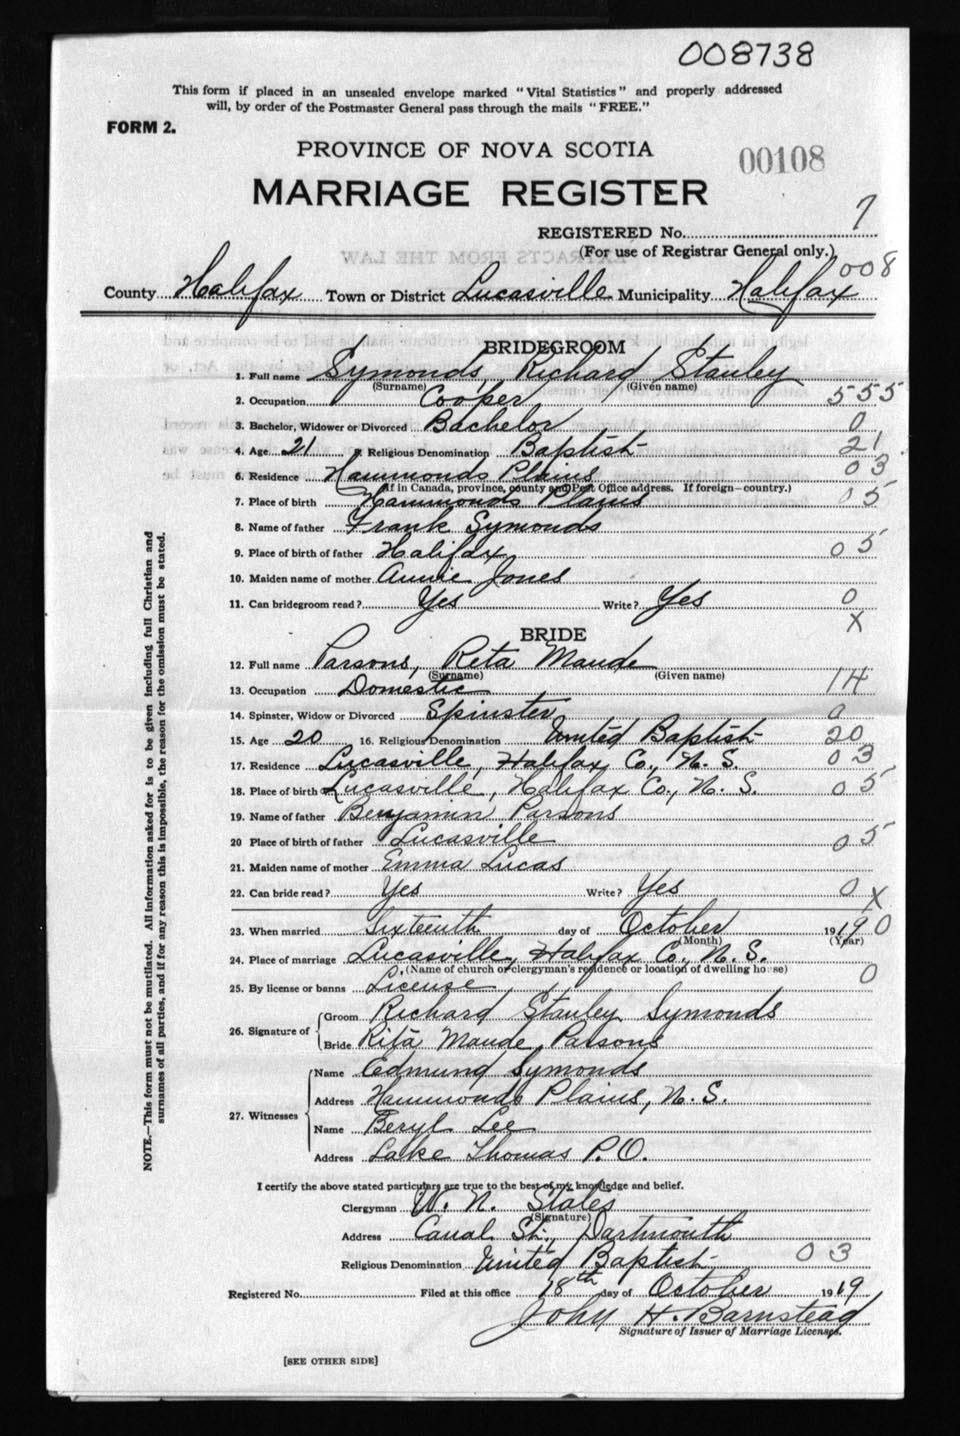 008738
This form if placed in an unsealed envelope marked "Vital Statistics" and properly addressed
will, by order of the Postmaster General pass through the mails "FREE."
FORM 2.
PROVINCE OF NOVA SCOTIA
00108
MARRIAGE REGISTER
REGISTERED No. 7
(For use of Registrar General only.)
008
County Halifax Town or District Lucasville Municipality Halifax
BRIDEGROOM
1. Full name Symonds, Richard Stanley
(Surname) (Given name)
2. Occupation Cooper 555
3. Bachelor, Widower or Divorced Bachelor 0
4. Age 21 Religious Denomination Baptist 21
6. Residence Hammonds Plains 03
(If in Canada, province, county and Post Office address. If foreign—country.)
7. Place of birth Hammonds Plains 05
8. Name of father Frank Symonds
9. Place of birth of father Halifax 05
10. Maiden name of mother Annie Jones
11. Can bridegroom read? Yes Write? Yes 0
X
BRIDE
12. Full name Parsons, Reta Maude
(Surname) (Given name)
13. Occupation Domestic 14
14. Spinster, Widow or Divorced Spinster 0
15. Age 20 16. Religious Denomination United Baptist 20
17. Residence Lucasville, Halifax Co., N. S. 03
18. Place of birth Lucasville, Halifax Co., N. S. 05
19. Name of father Benjamin Parsons
20 Place of birth of father Lucasville 05
21. Maiden name of mother Emma Lucas
22. Can bride read? Yes Write? Yes 0
X
23. When married Sixteenth day of October 19 19 0
(Month) (Year)
24. Place of marriage Lucasville, Halifax Co., N. S.
(Name of church or clergyman's residence or location of dwelling house)
25. By license or banns License 0
26. Signature of
Groom Richard Stanley Symonds
Bride Rita Maude Parsons
27. Witnesses
Name Edmund Symonds
Address Hammonds Plains, N. S.
Name Beryl Lee
Address Lake Thomas P.O.
I certify the above stated particulars are true to the best of my knowledge and belief.
Clergyman W. N. States
(Signature)
Address Canal St., Dartmouth
Religious Denomination United Baptist 03
Registered No. Filed at this office 18th day of October 1919
John H. Barnstead
Signature of Issuer of Marriage Licenses.
[SEE OTHER SIDE]
NOTE.—This form must not be mutilated. All information asked for is to be given including full Christian and
surnames of all parties, and if for any reason this is impossible, the reason for the omission must be stated.